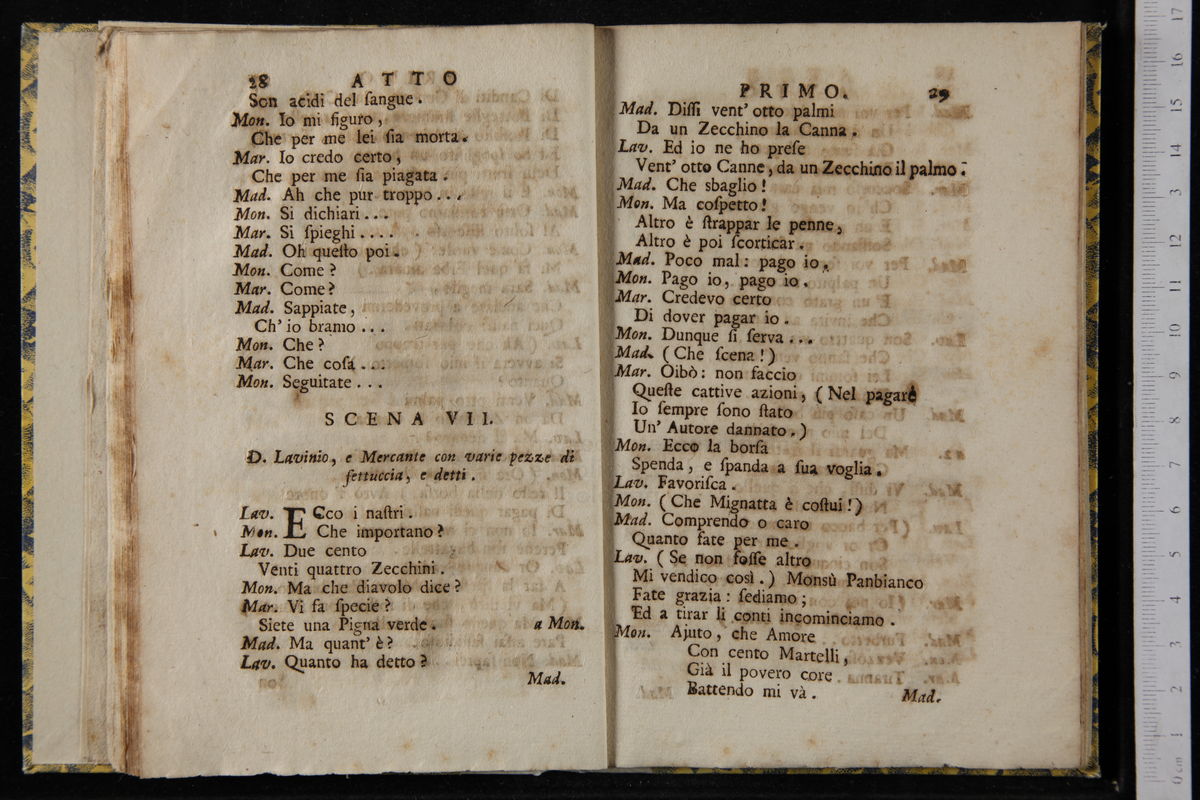 28 ATTO
Son acidi del ſangue.
Mon. Io mi figuro,
Che per me lei ſia morta.
Mar. Io credo certo,
Che per me ſia piagata.
Mad. Ah che pur troppo...
Mon. Si dichiari...
Mar. Si ſpieghi....
Mad. Oh queſto poi.
Mon. Come?
Mar. Come?
Mad. Sappiate,
Ch' io bramo...
Mon. Che?
Mar. Che coſa...
Mon. Seguitate...
SCENA VII.
D. Lavinio, e Mercante con varie pezze di
fettuccia, e detti.
Lav. ECco i naſtri.
Mon. Che importano?
Lav. Due cento
Venti quattro Zecchini.
Mon. Ma che diavolo dice?
Mar. Vi fa ſpecie?
Siete una Pigna verde. a Mon.
Mad. Ma quant' è?
Lav. Quanto ha detto?
Mad.
PRIMO. 29
Mad. Diſſi vent' otto palmi
Da un Zecchino la Canna.
Lav. Ed io ne ho preſe
Vent' otto Canne, da un Zecchino il palmo.
Mad. Che sbaglio!
Mon. Ma coſpetto!
Altro è ſtrappar le penne,
Altro è poi ſcorticar.
Mad. Poco mal: pago io.
Mon. Pago io, pago io.
Mar. Credevo certo
Di dover pagar io.
Mon. Dunque ſi ſerva...
Mad. (Che ſcena!)
Mar. Oibò: non faccio
Queſte cattive azioni, (Nel pagare
Io ſempre ſono ſtato
Un' Autore dannato.)
Mon. Ecco la borſa
Spenda, e ſpanda a ſua voglia.
Lav. Favoriſca.
Mon. (Che Mignatta è coſtui!)
Mad. Comprendo o caro
Quanto fate per me.
Lav. (Se non foſſe altro
Mi vendico così.) Monsù Panbianco
Fate grazia: ſediamo;
Ed a tirar li conti incominciamo.
Mon. Ajuto, che Amore
Con cento Martelli,
Già il povero core
Battendo mi và.
Mad.